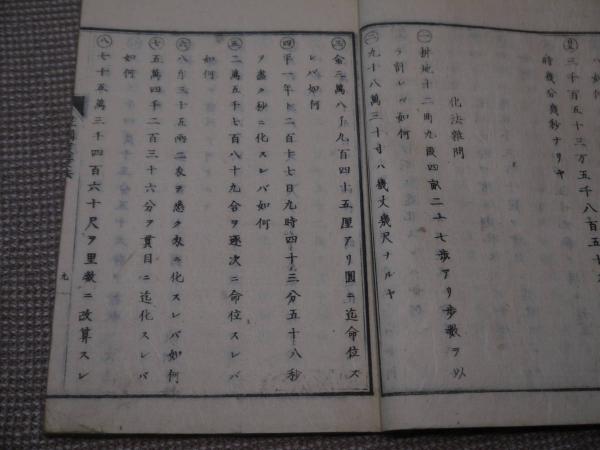 ハ如何
三千百五十三万五千八百五十
時幾分幾秒ナリヤ
化法雜問
一 耕地十二町九段四畝二十七歩アリ歩數ヲ以
テ計レバ如何
二 九十八萬三十寸ハ幾丈幾尺ナルヤ
三 金二萬八千九百四十五厘アリ圓ニ迄命位ス
レバ如何
四 平一年ト二百七十七日九時四十三分五十八秒
ヲ盡ク秒ニ化スレバ如何
五 二萬五千七百八十九合ヲ逐次ニ命位スレバ
如何
六 八斤三十五兩二匁ヲ悉ク匁ニ化スレバ如何
七 五萬四千二百三十六分ヲ貫目ニ迄化スレバ
如何
八 七十五萬三千四百六十尺ヲ里數ニ改算スレ
九